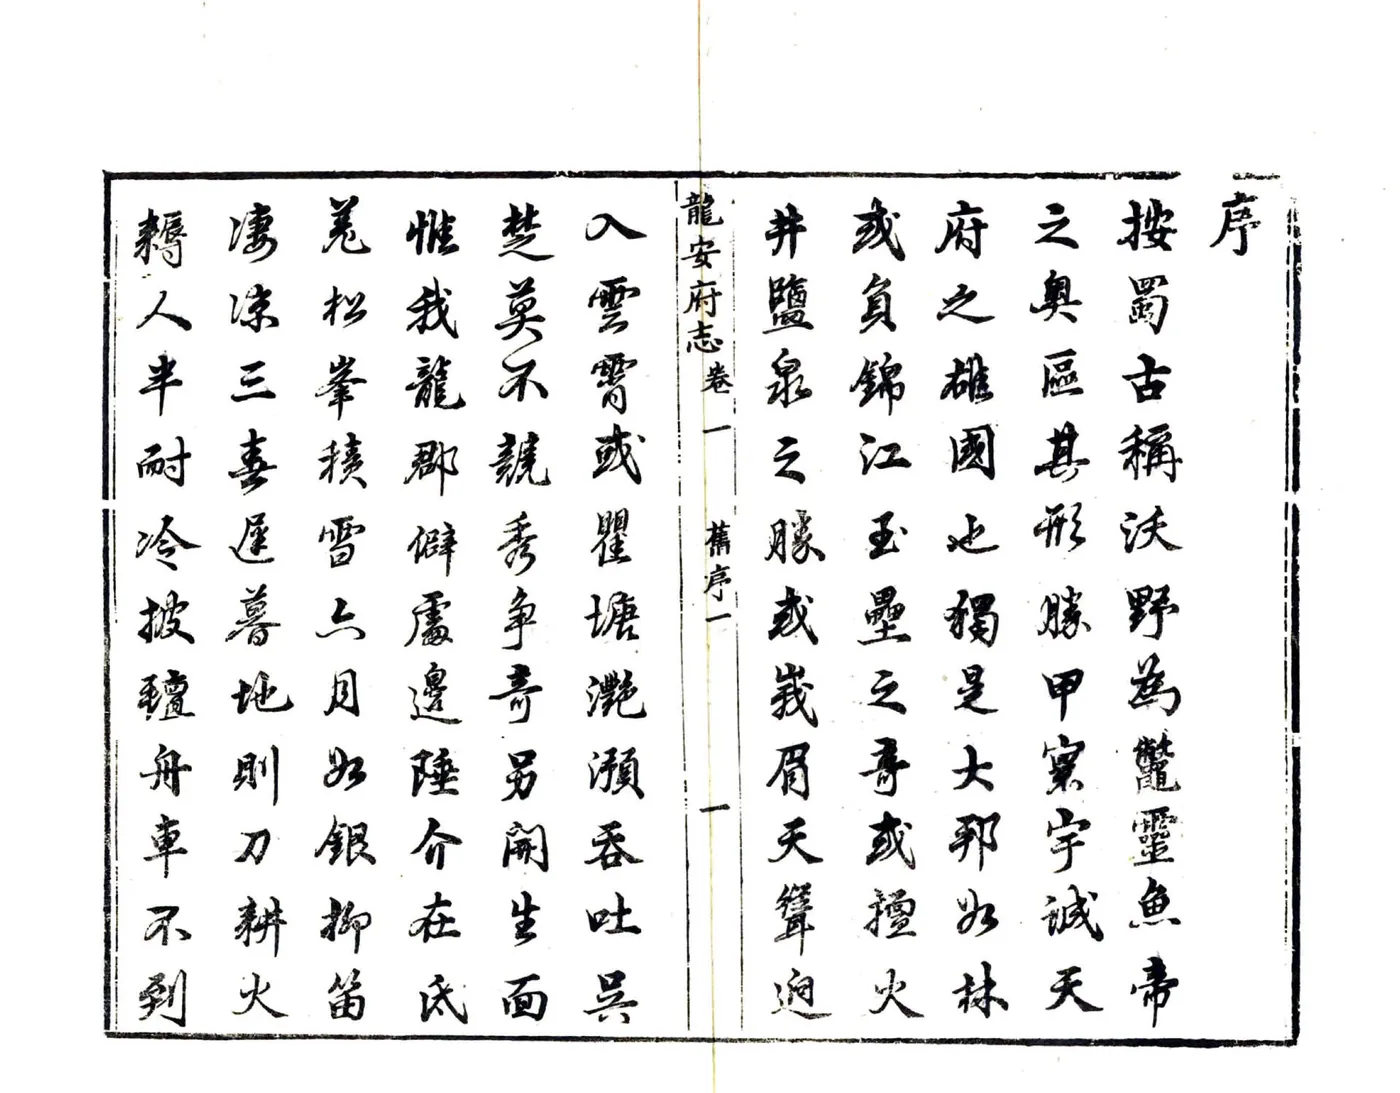 序
按蜀古稱沃野為鼈靈魚帝
之奧區其形勝甲寰宇誠天
府之雄國也獨是大邦如林
或負錦江玉壘之奇或擅火
井鹽泉之勝或峩眉天聳迥
龍安府志 卷一 舊序一 一
入雲霄或瞿塘灧澦吞吐吳
楚莫不競秀爭奇另開生面
惟我龍郡僻處邊陲介在氐
羌松峯積雪六月如銀柳笛
淒涼三春遲暮地則刀耕火
耨人半耐冷披氊舟車不到